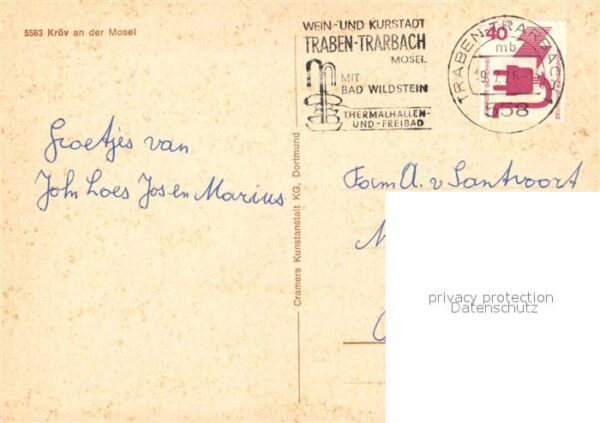 5563 Kröv an der Mosel
WEIN-UND KURSTADT
TRABEN-TRARBACH
MOSEL
MIT
BAD WILDSTEIN
THERMALHALLEN-
UND-FREIBAD
TRABEN-TRARBACH
mb
558
40
Groetjes van
John Loes Jos en Marius
Cramers Kunstanstalt KG, Dortmund
Fam A. v Santvoort
privacy protection
Datenschutz